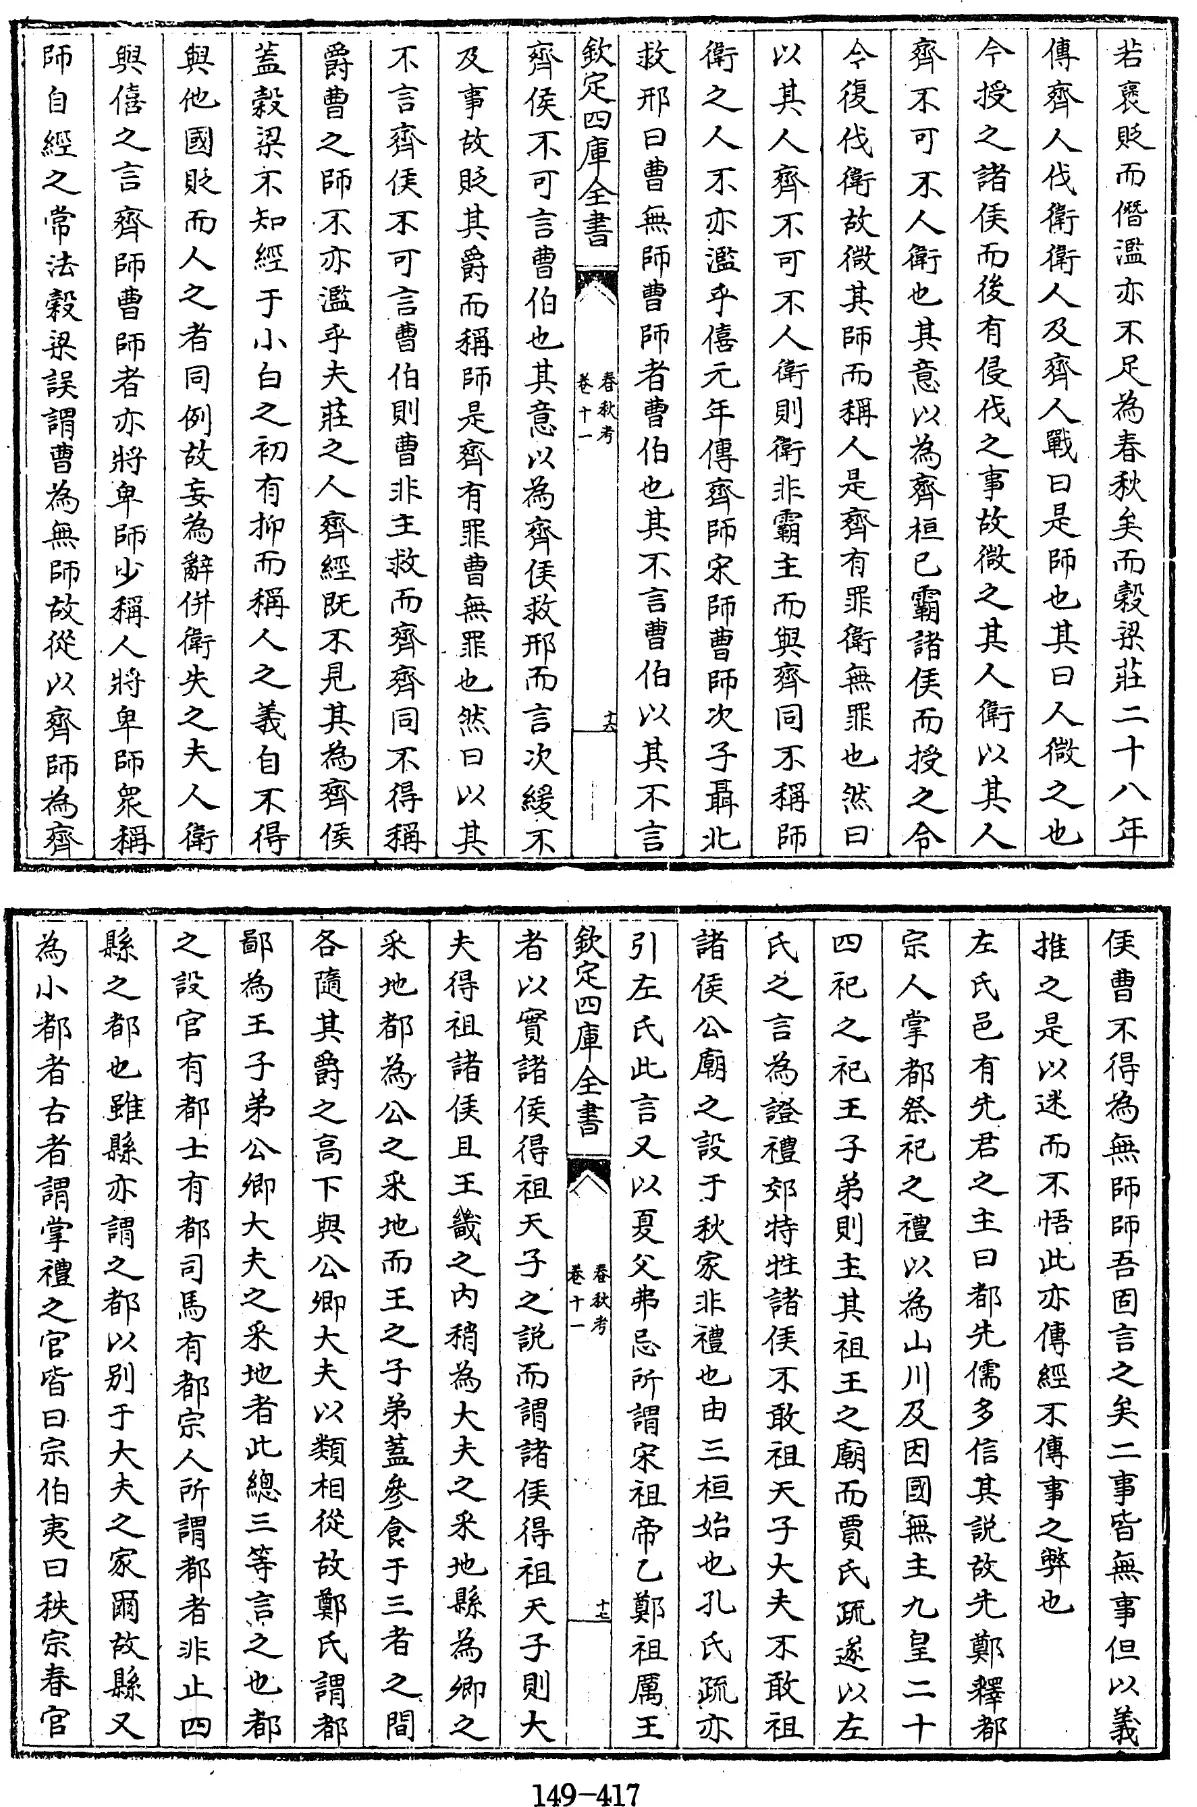 若褒貶而僭濫亦不足為春秋矣而穀梁莊二十八年
傳齊人伐衛衛人及齊人戰曰是師也其曰人微之也
今授之諸侯而後有侵伐之事故微之其人衛以其人
齊不可不人衛也其意以為齊桓已霸諸侯而授之令
今復伐衛故微其師而稱人是齊有罪衛無罪也然曰
以其人齊不可不人衛則衛非霸主而與齊同不稱師
衛之人不亦濫乎僖元年傳齊師宋師曹師次于聶北
救邢曰曹無師曹師者曹伯也其不言曹伯以其不言
欽定四庫全書
春秋考
卷十一
十六
齊侯不可言曹伯也其意以為齊侯救邢而言次緩不
及事故貶其爵而稱師是齊有罪曹無罪也然曰以其
不言齊侯不可言曹伯則曹非主救而齊齊同不得稱
爵曹之師不亦濫乎夫莊之人齊經既不見其為齊侯
蓋穀梁不知經于小白之初有抑而稱人之義自不得
與他國貶而人之者同例故妄為辭併衛失之夫人衛
與僖之言齊師曹師者亦將卑師少稱人將卑師衆稱
師自經之常法穀梁誤謂曹為無師故從以齊師為齊
侯曹不得為無師師吾固言之矣二事皆無事但以義
推之是以迷而不悟此亦傳經不傳事之弊也
左氏邑有先君之主曰都先儒多信其説故先鄭釋都
宗人掌都祭祀之禮以為山川及因國無主九皇二十
四祀之祀王子弟則主其祖王之廟而賈氏疏遂以左
氏之言為證禮郊特牲諸侯不敢祖天子大夫不敢祖
諸侯公廟之設于秋家非禮也由三桓始也孔氏疏亦
引左氏此言又以夏父弗忌所謂宋祖帝乙鄭祖厲王
欽定四庫全書
春秋考
卷十一
十七
者以實諸侯得祖天子之説而謂諸侯得祖天子則大
夫得祖諸侯且王畿之内稍為大夫之采地縣為卿之
采地都為公之采地而王之子弟蓋參食于三者之間
各隨其爵之高下與公卿大夫以類相從故鄭氏謂都
鄙為王子弟公卿大夫之采地者此總三等言之也都
之設官有都士有都司馬有都宗人所謂都者非止四
縣之都也雖縣亦謂之都以别于大夫之家爾故縣又
為小都者古者謂掌禮之官皆曰宗伯夷曰秩宗春官
149-417